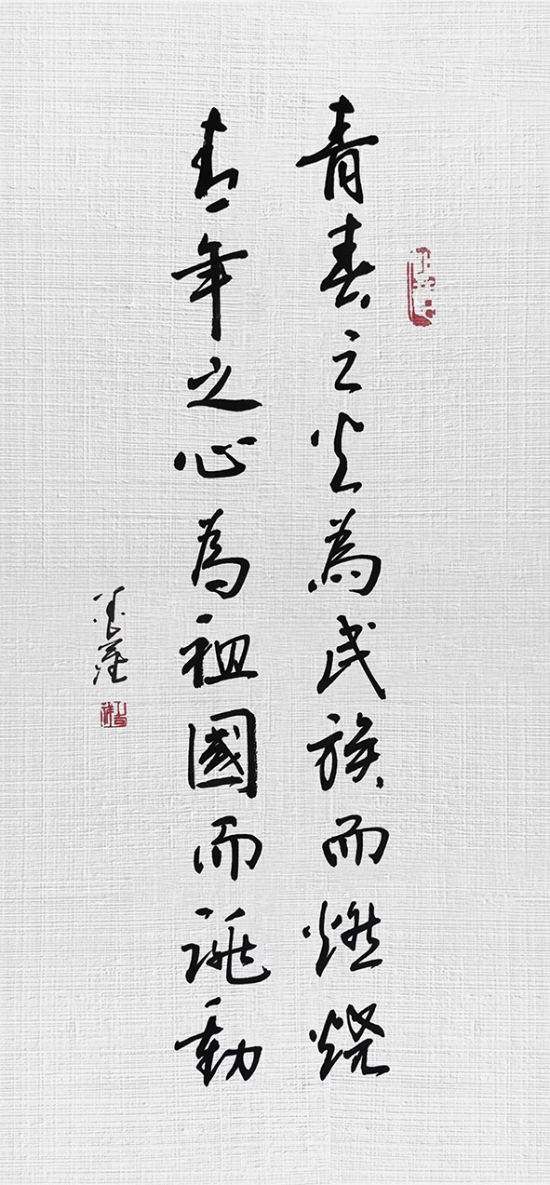 青春之光為民族而燃烧
青年之心為祖國而跳動